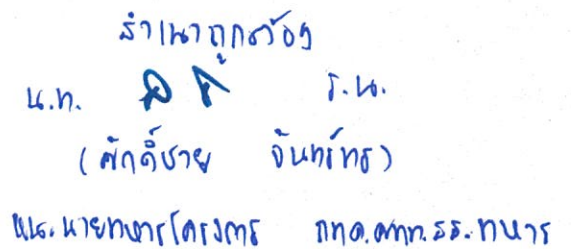 สำเนาถูกต้อง
น.ท. ร.น.
(ศักดิ์ชาย จันทร์ทร)
หน.นายทหารโครงการ กทด.ศทท.สส.ทหาร